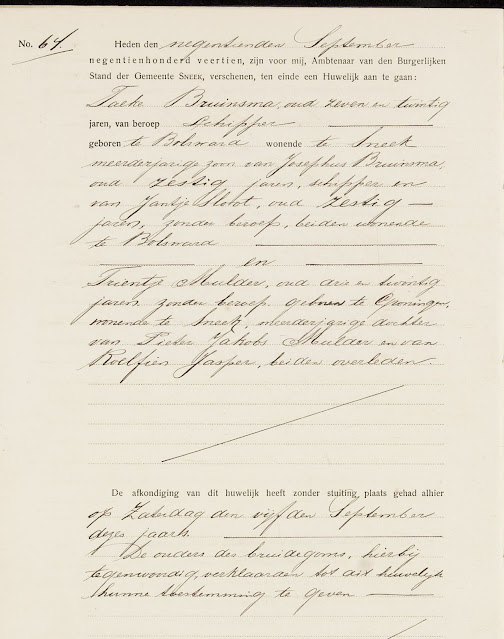 No. 64. Heden den negentienden September
negentienhonderd veertien, zijn voor mij, Ambtenaar van den Burgerlijken
Stand der Gemeente SNEEK, verschenen, ten einde een Huwelijk aan te gaan:
Taeke Bruinsma, oud zeven en twintig
jaren, van beroep Schipper
geboren te Bolsward wonende te Sneek
meerderjarige zoon van Josephus Bruinsma,
oud zestig jaren, schipper en
van Jantje Slobot, oud zestig
jaren, zonder beroep, beiden wonende
te Bolsward
en
Trientje Mulder, oud drie en twintig
jaren zonder beroep geboren te Groningen,
wonende te Sneek, meerderjarige dochter
van Pieter Jakobs Mulder en van
Roelfien Jasper, beiden overleden.
De afkondiging van dit huwelijk heeft zonder stuiting, plaats gehad alhier
op Zaterdag den vijfden September
dezes jaars.
De ouders des bruidegoms, hierbij
tegenwoordig, verklaarden tot dit huwelijk
hunne toestemming te geven